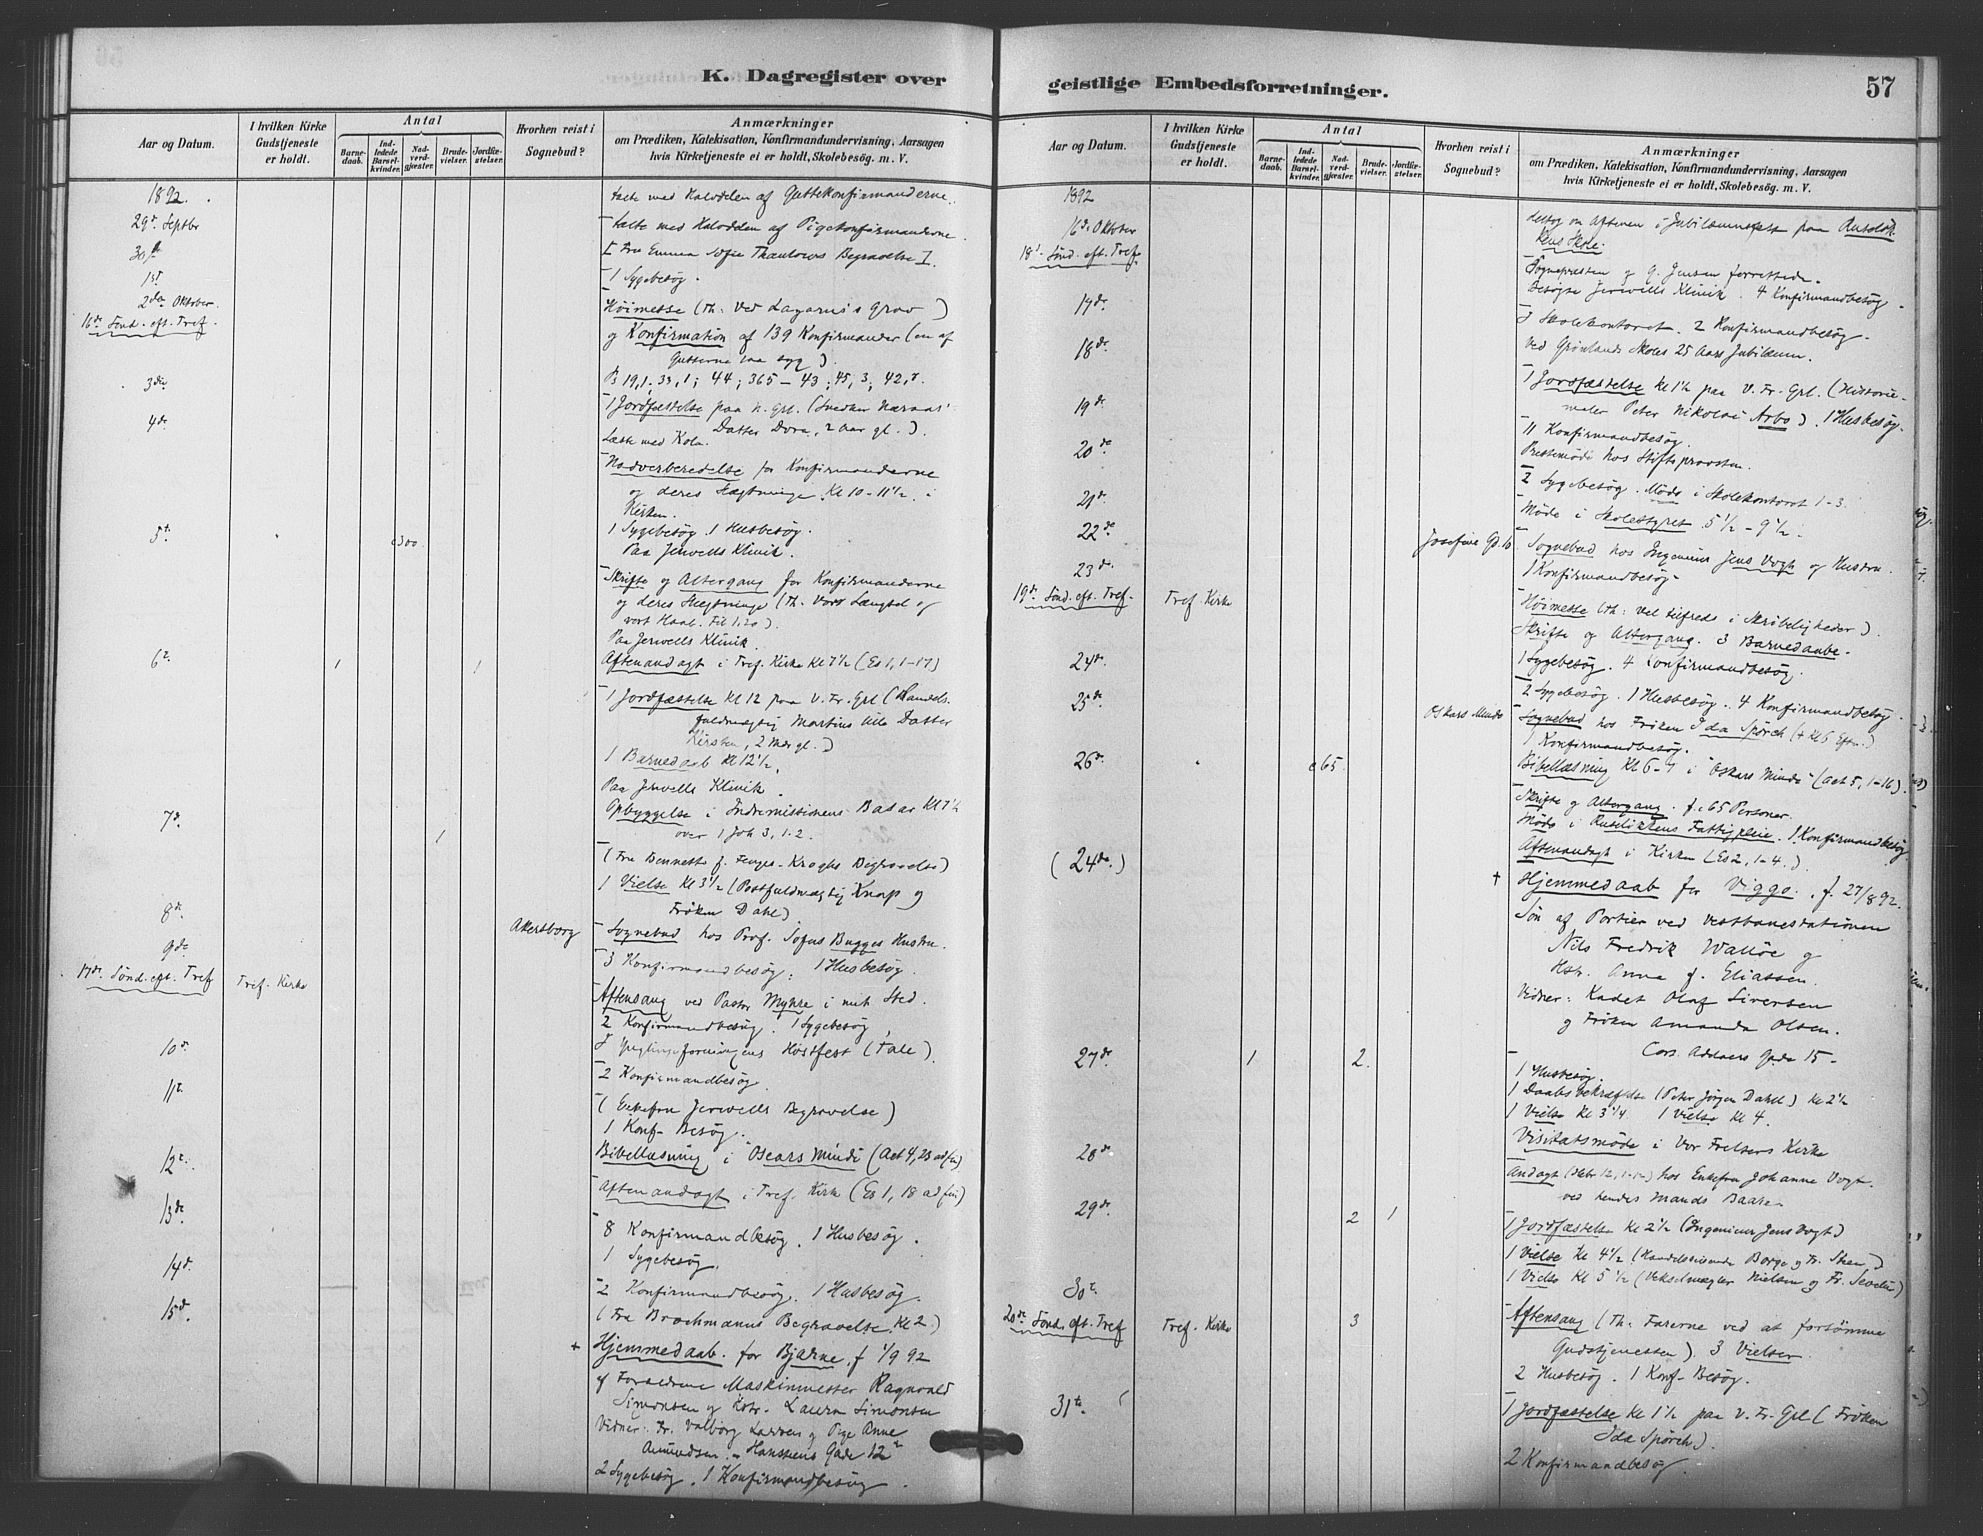 K. Dagregister over
Aar og Datum.
I hvilken Kirke Gudstjeneste er holdt.
Antal
Barnedaab.
Indledede Barselkvinder.
Nadverdgjæster.
Brudevielser.
Jordfæstelser.
Hvorhen reist i Sognebud?
Anmærkninger
om Prædiken, Katekisation, Konfirmandundervisning, Aarsagen
hvis Kirketjeneste ei er holdt, Skolebesøg. m. V.
1892.
29de Septbr
30te
1st
2den Oktober
16de Sønd. eft. Tref.
3die
4de
5t.
c300.
6te
1
1
7de
1
8de
9de
17de Sønd. eft. Tref
Tref. Kirke
Akersborg
10de
11te
12te
13de
14de
15de
læste med Halvdelen af Guttekonfirmanderne.
læste med Halvdelen af Pigekonfirmanderne.
[Fru Emma Sofie Thaulows Begravelse].
1 Sygebesøg.
Høimesse (Th: Ved Lazarus's Grav)
og Konfirmation af 139 Konfirmander (en af
Gutterne var syg).
B 19,1; 33,1; 44; 365 – 43; 45, 3; 42,
1 Jordfæstelse paa N. Grl. (Snedker
Datter Dora, 2 Aar gl.).
Læste med Koln.
Nadverberedelse for Konfirmanderne
og deres Slægtninge Kl 10-11½ i
Kirken.
1 Sygebesøg. 1 Husbesøg.
Paa Jervells Klinik.
Skrifte og Altergang for Konfirmanderne
og deres Slægtninge (Th. Vor Længsel og
vort Haab. Fil 1,20).
Paa Jervells Klinik.
Aftenandagt i Tref. Kirke Kl 7½ (Es 1, 1-17)
1 Jordfæstelse Kl 12 paa V. Fr. Grl (Handels-
fuldmægtig Martius Datter
Kirsten, 2 Mdr gl.)
1 Barnedaab Kl 12½.
Paa Jervells Klinik.
Opbyggelse i Indremissionens Basar Kl 7½
over 1 Joh 3, 1-2.
(Fru Bennett f. Kroghs Begravelse)
1 Vielse Kl 3½ (Postfuldmægtig Knap og
Frøken Dahl)
Sognebud hos Prof. Sofus Bugges Hustru.
3 Konfirmandbesøg. 1 Husbesøg.
Aftensang ved Pastor Myhre i mit Sted.
2 Konfirmandbesøg. 1 Sygebesøg.
I Ynglingeforeningens Høstfest (Tale).
2 Konfirmandbesøg.
(Enkefru Jervells Begravelse)
1 Konf- Besøg.
Bibellæsning i Oscars Minde (Act 4, 23 ad fin)
Aftenandagt i Tref. Kirke (Es 1, 18 ad fin)
8 Konfirmandbesøg. 1 Husbesøg.
1 Sygebesøg.
2 Konfirmandbesøg. 1 Husbesøg.
(Fru Brochmanns Begravelse Kl 2.)
+ Hjemmedaab for Bjarne, f 1/9 92
af Forældrene Maskinmester Ragnvald
Simonsen og Hstr. Laura Simonsen
Vidner: Fr. Valborg Larsen og Pige Anne
Amundsen. – Hansteens Gade 12
2 Sygebesøg. 1 Konfirmandbesøg.
geistlige Embedsforretninger.
57
Aar og Datum.
I hvilken Kirke Gudstjeneste er holdt.
Antal
Barnedaab.
Indledede Barselkvinder.
Nadverdgjæster.
Brudevielser.
Jordfæstelser.
Hvorhen reist i Sognebud?
Anmærkninger
om Prædiken, Katekisation, Konfirmandundervisning, Aarsagen
hvis Kirketjeneste ei er holdt, Skolebesøg. m. V.
1892
16de Oktober
18de Sønd. eft. Tref.
17de
18de
19de
20de
21de
22de
Josefine Gd. 10
23de
19de Sønd. eft. Tref.
Tref. Kirke
24de
25de
Oskars Minde
26de
c65.
(24de.)
27de
1
2.
28de
29de
2
1
30te
20de Sønd. eft. Tref
Tref. Kirke
3
31te
deltog om Aftenen i Jubilæumsfest paa Ruseløk-
kens Skole.
Sognepræsten og G. Jensen forrettede.
Besøgte Jervells Klinik. 4 Konfirmandbesøg.
I Skolekontoret. 2 Konfirmandbesøg.
Ved Grønlands Skoles 25 Aars Jubilæum.
1 Jordfæstelse Kl 1½ paa V. Fr. Grl. (Historie-
maler Peter Nikolai Arbo). 1 Husbesøg.
11 Konfirmandbesøg.
Prestemøde hos Stiftsprovsten.
2 Sygebesøg. Møde i Skolekontoret 1-3.
Møde i Skolestyret 5½ – 9½.
Sognebud hos Ingeniør Jens Vogt og Hustru.
1 Konfirmandbesøg.
Høimesse (Th: Vel tilfreds i Skrøbeligheder).
Skrifte og Altergang. 3 Barnedaabe.
1 Sygebesøg. 4 Konfirmandbesøg.
2 Sygebesøg. 1 Husbesøg. 4 Konfirmandbesøg.
Sognebud hos Frøken Ida Spørch (+ Kl 6 Eftm.)
1 Konfirmandbesøg.
Bibellæsning Kl 6-7 i "Oskars Minde" (Act 5, 1-16).
Skrifte og Altergang f. c65 Personer.
Møde i Ruseløkkens Fattigpleie. 1 Konfirmandbesøg.
Aftenandagt i Kirken (Es 2, 1-4.)
+ Hjemmedaab for Viggo. f. 27/8 92.
Søn af Portier ved Vestbanestationen
Nils Fredrik Walløe og
Hstr. Anna f. Eliassen.
Vidner: Kadet Olaf Sivertsen
og Frøken Amanda Olsen.
Cort Adelers Gade 15 –
1 Husbesøg.
1 Daabsbekræftelse (Peter Jørgen Dahl.) Kl 2½
1 Vielse Kl 3¼ 1 Vielse Kl 4.
Visitatsmøde i Vor Frelsers Kirke
Andagt (Hebr 12, 1-) hos Enkefru Johanne Vogt.
ved hendes Mands Baare
1 Jordfæstelse Kl 2½ (Ingeniør Jens Vogt)
1 Vielse Kl 4½ (Handelsreisende Borge og Fr. Steen)
1 Vielse Kl 5½ (Vekselmægler Nielsen og Fr.
Aftensang (Th: Farerne ved at forsømme
Gudstjenesten). 3 Vielser.
2 Husbesøg. 1 Konf- Besøg.
1 Jordfæstelse Kl 1½ paa V. Fr. Grl (Frøken
Ida Spørch).
2 Konfirmandbesøg.